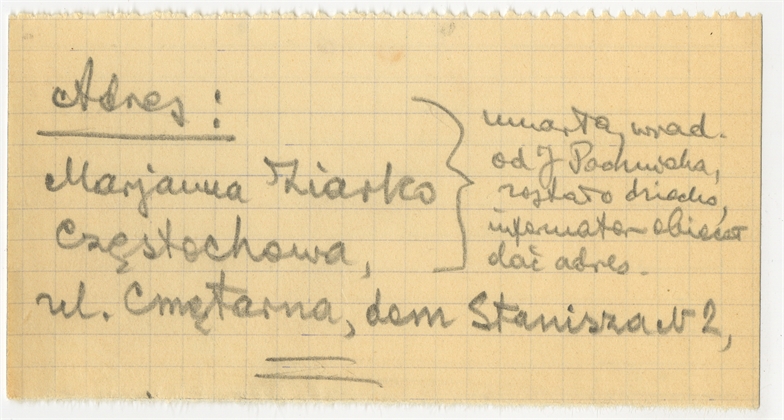 Adres:
Marjanna Ziarko
Częstochowa,
ul. Cmętarna, dom Stanisza N 2,
umarła, wiad.
od J Pachucha,
zostało dziecko,
informator obiecał
dać adres.